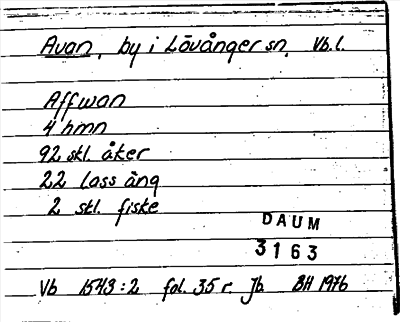 Avan, by i Lövånger sn, Vb.l.
Affwan
4 hmn
92 skl. åker
22 lass äng
2 skl. fiske
DAUM
3163
Vb 1543:2 fol. 35 r. Jb. BH 1976